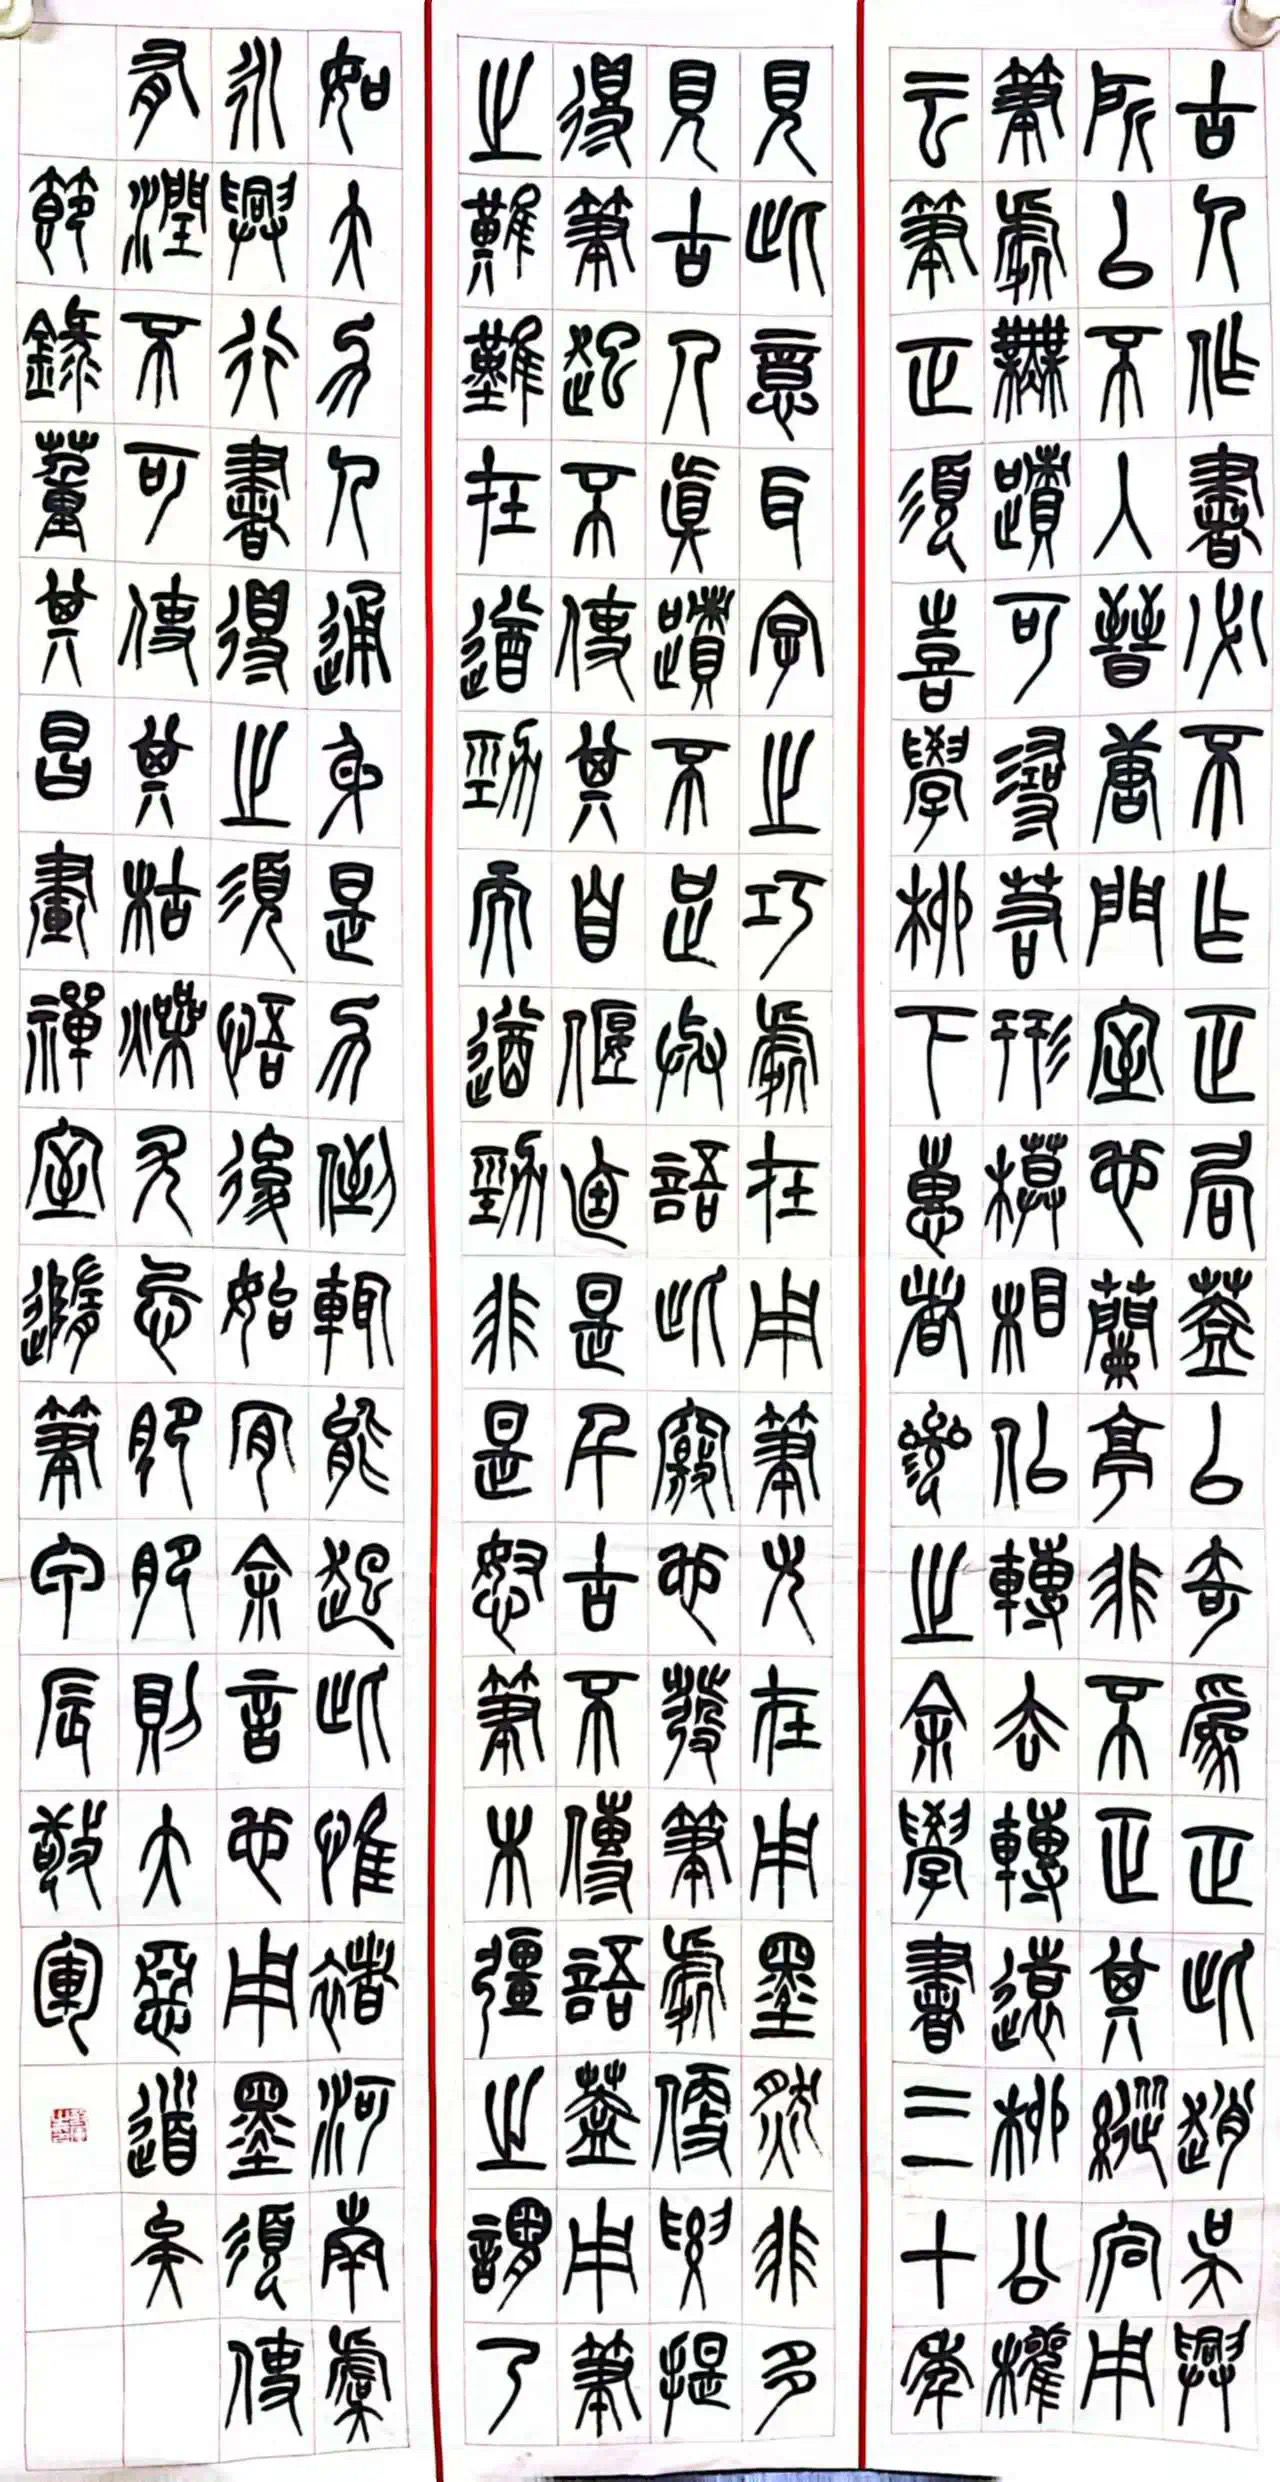 古人作書必不作正局蓋以奇爲正此趙吳興
所以不入晉唐門室也蘭亭非不正其縱宕用
筆處無蹟可尋若形模相似轉去轉遠柳公權
云筆正須喜學柳下惠者參之余學書三十年
見此意耳字之巧處在用筆尤在用墨然非多
見古人真蹟不足與語此竅也發筆處便要提
得筆起不使其自偃乃是千古不傳語蓋用筆
之難難在遒勁而遒勁非是怒筆木彊之謂乃
如大力人通身是力倒輒能起此惟褚河南虞
永興行書得之須悟後始肯余言也用墨須使
有潤不可使其枯燥尤忌肥肥則大惡道矣
節錄董其昌畫禪室隨筆甲辰敬軍